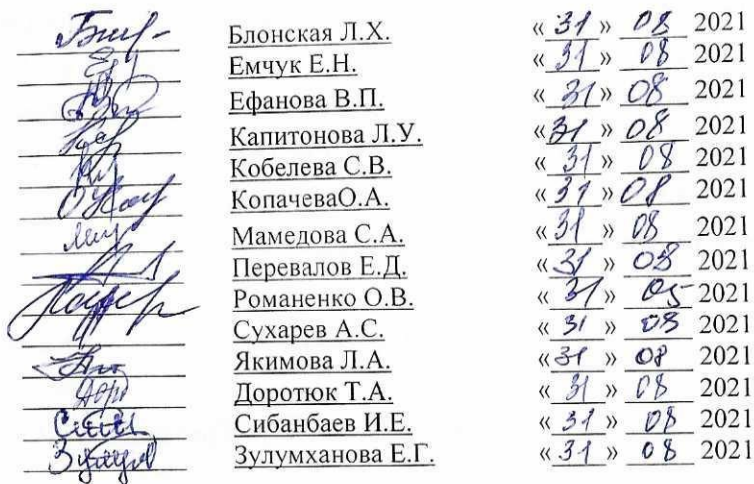 Блонская Л.Х. « 31 » 08 2021
Емчук Е.Н. « 31 » 08 2021
Ефанова В.П. « 31 » 08 2021
Капитонова Л.У. « 31 » 08 2021
Кобелева С.В. « 31 » 08 2021
КопачеваО.А. « 31 » 08 2021
Мамедова С.А. « 31 » 08 2021
Перевалов Е.Д. « 31 » 08 2021
Романенко О.В. « 31 » 2021
Сухарев А.С. « 31 » 08 2021
Якимова Л.А. « 31 » 08 2021
Доротюк Т.А. « 31 » 08 2021
Сибанбаев И.Е. « 31 » 08 2021
Зулумханова Е.Г. « 31 » 08 2021